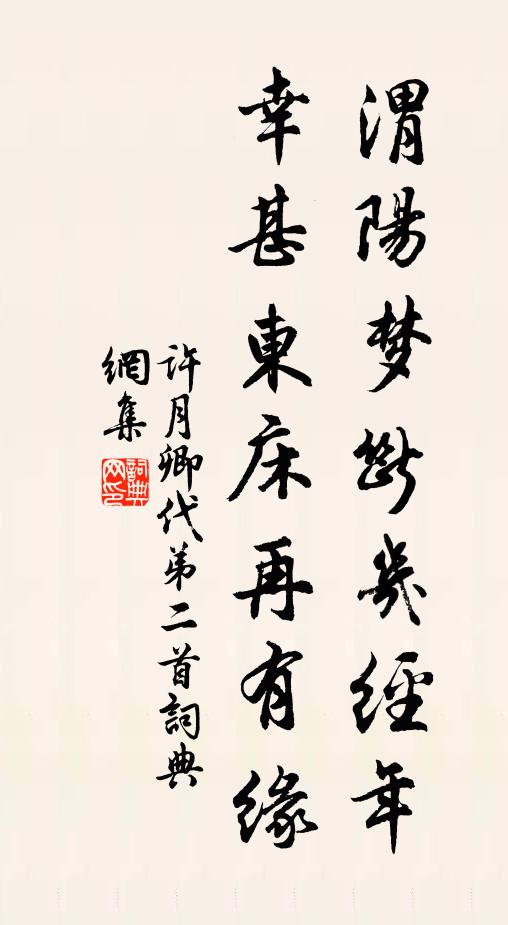 渭陽梦斷幾經年
幸甚東床再有緣
許月卿代第二首詞典
網集
詞典网印